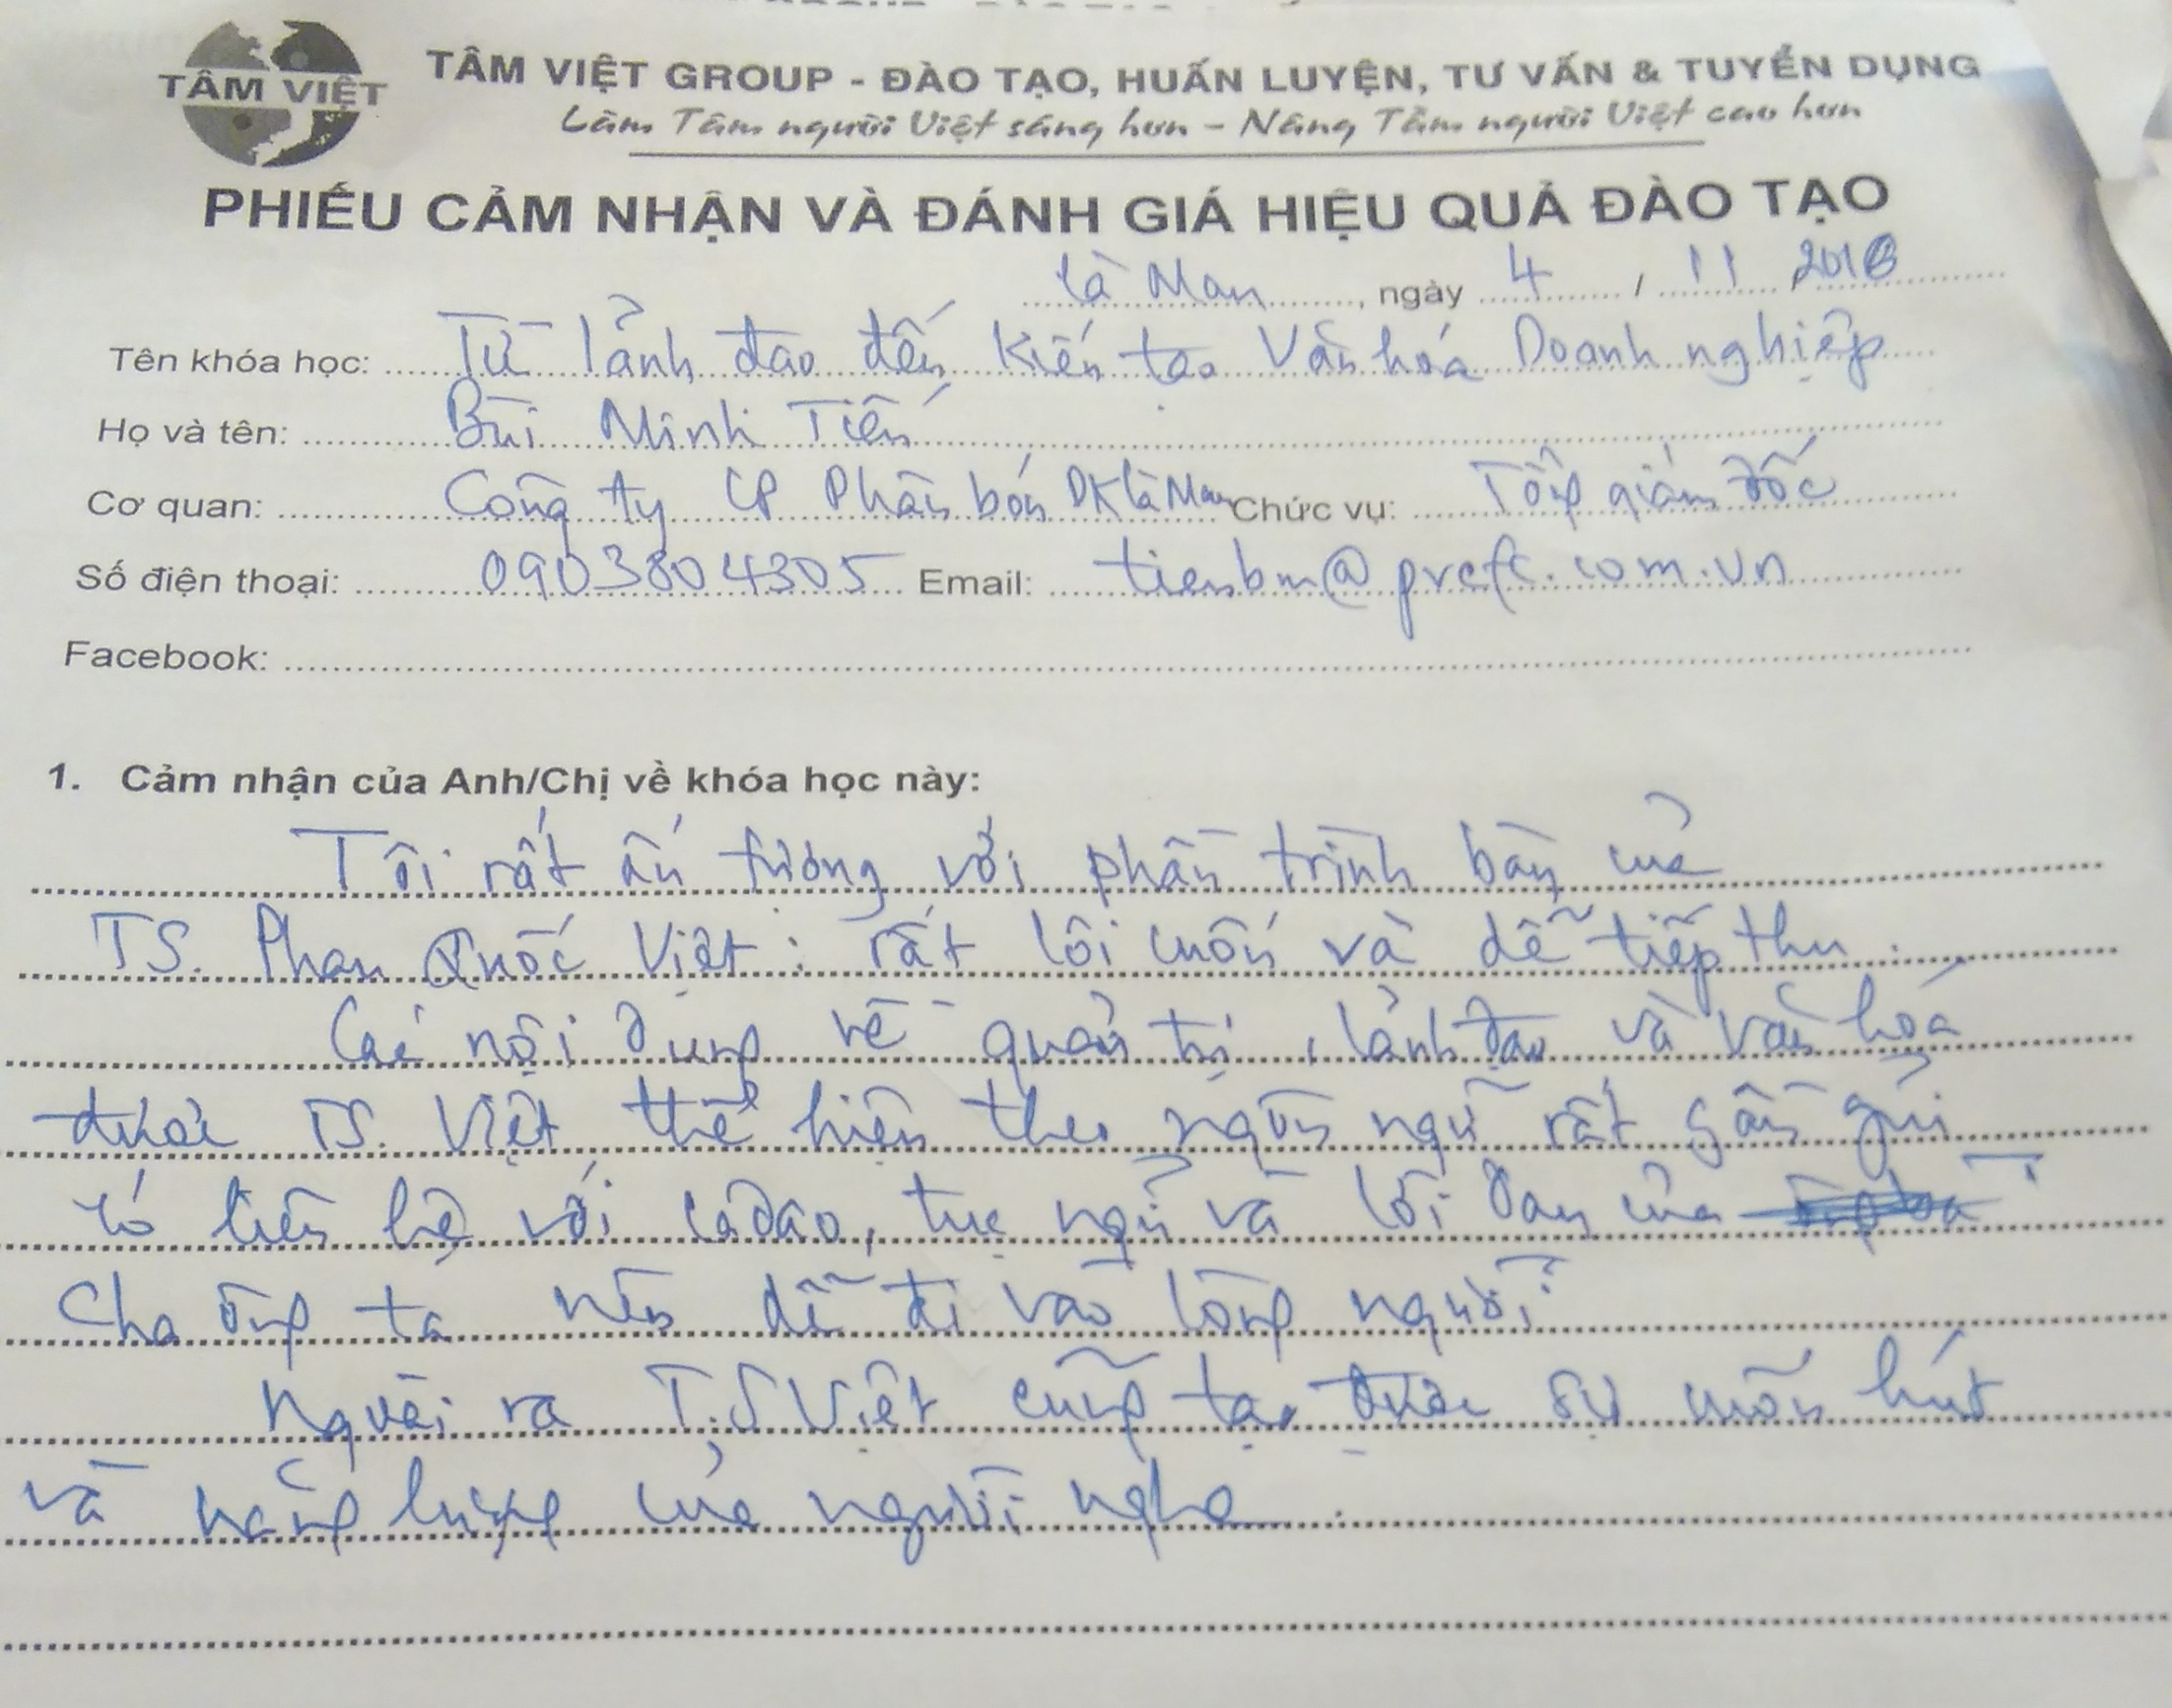 TÂM VIỆT
TÂM VIỆT GROUP - ĐÀO TẠO, HUẤN LUYỆN, TƯ VẤN & TUYỂN DỤNG
Làm Tâm người Việt sáng hơn - Nâng Tầm người Việt cao hơn
PHIẾU CẢM NHẬN VÀ ĐÁNH GIÁ HIỆU QUẢ ĐÀO TẠO
Cà Mau, ngày 4 / 11 / 2018
Tên khóa học: Từ lảnh đạo đến Kiến tạo Văn hóa Doanh nghiệp
Họ và tên: Bùi Minh Tiến
Cơ quan: Công ty CP Phân bón DK Cà Mau Chức vụ: Tổng giám đốc
Số điện thoại: 0903804305 Email: tienbm@pvcfc.com.vn
Facebook:
1. Cảm nhận của Anh/Chị về khóa học này:
Tôi rất ấn tượng với phần trình bày của
TS. Phan Quốc Việt: rất lôi cuốn và dễ tiếp thu.
Các nội dung về quản trị, lảnh đạo và văn hóa
được TS. Việt thể hiện theo ngôn ngữ rất gần gũi
có liên hệ với ca dao, tục ngữ và lời dạy của
cha ông ta nên dễ đi vào lòng người.
Ngoài ra T.S Việt cũng tạo được sự cuốn hút
và năng lượng của người nghe.